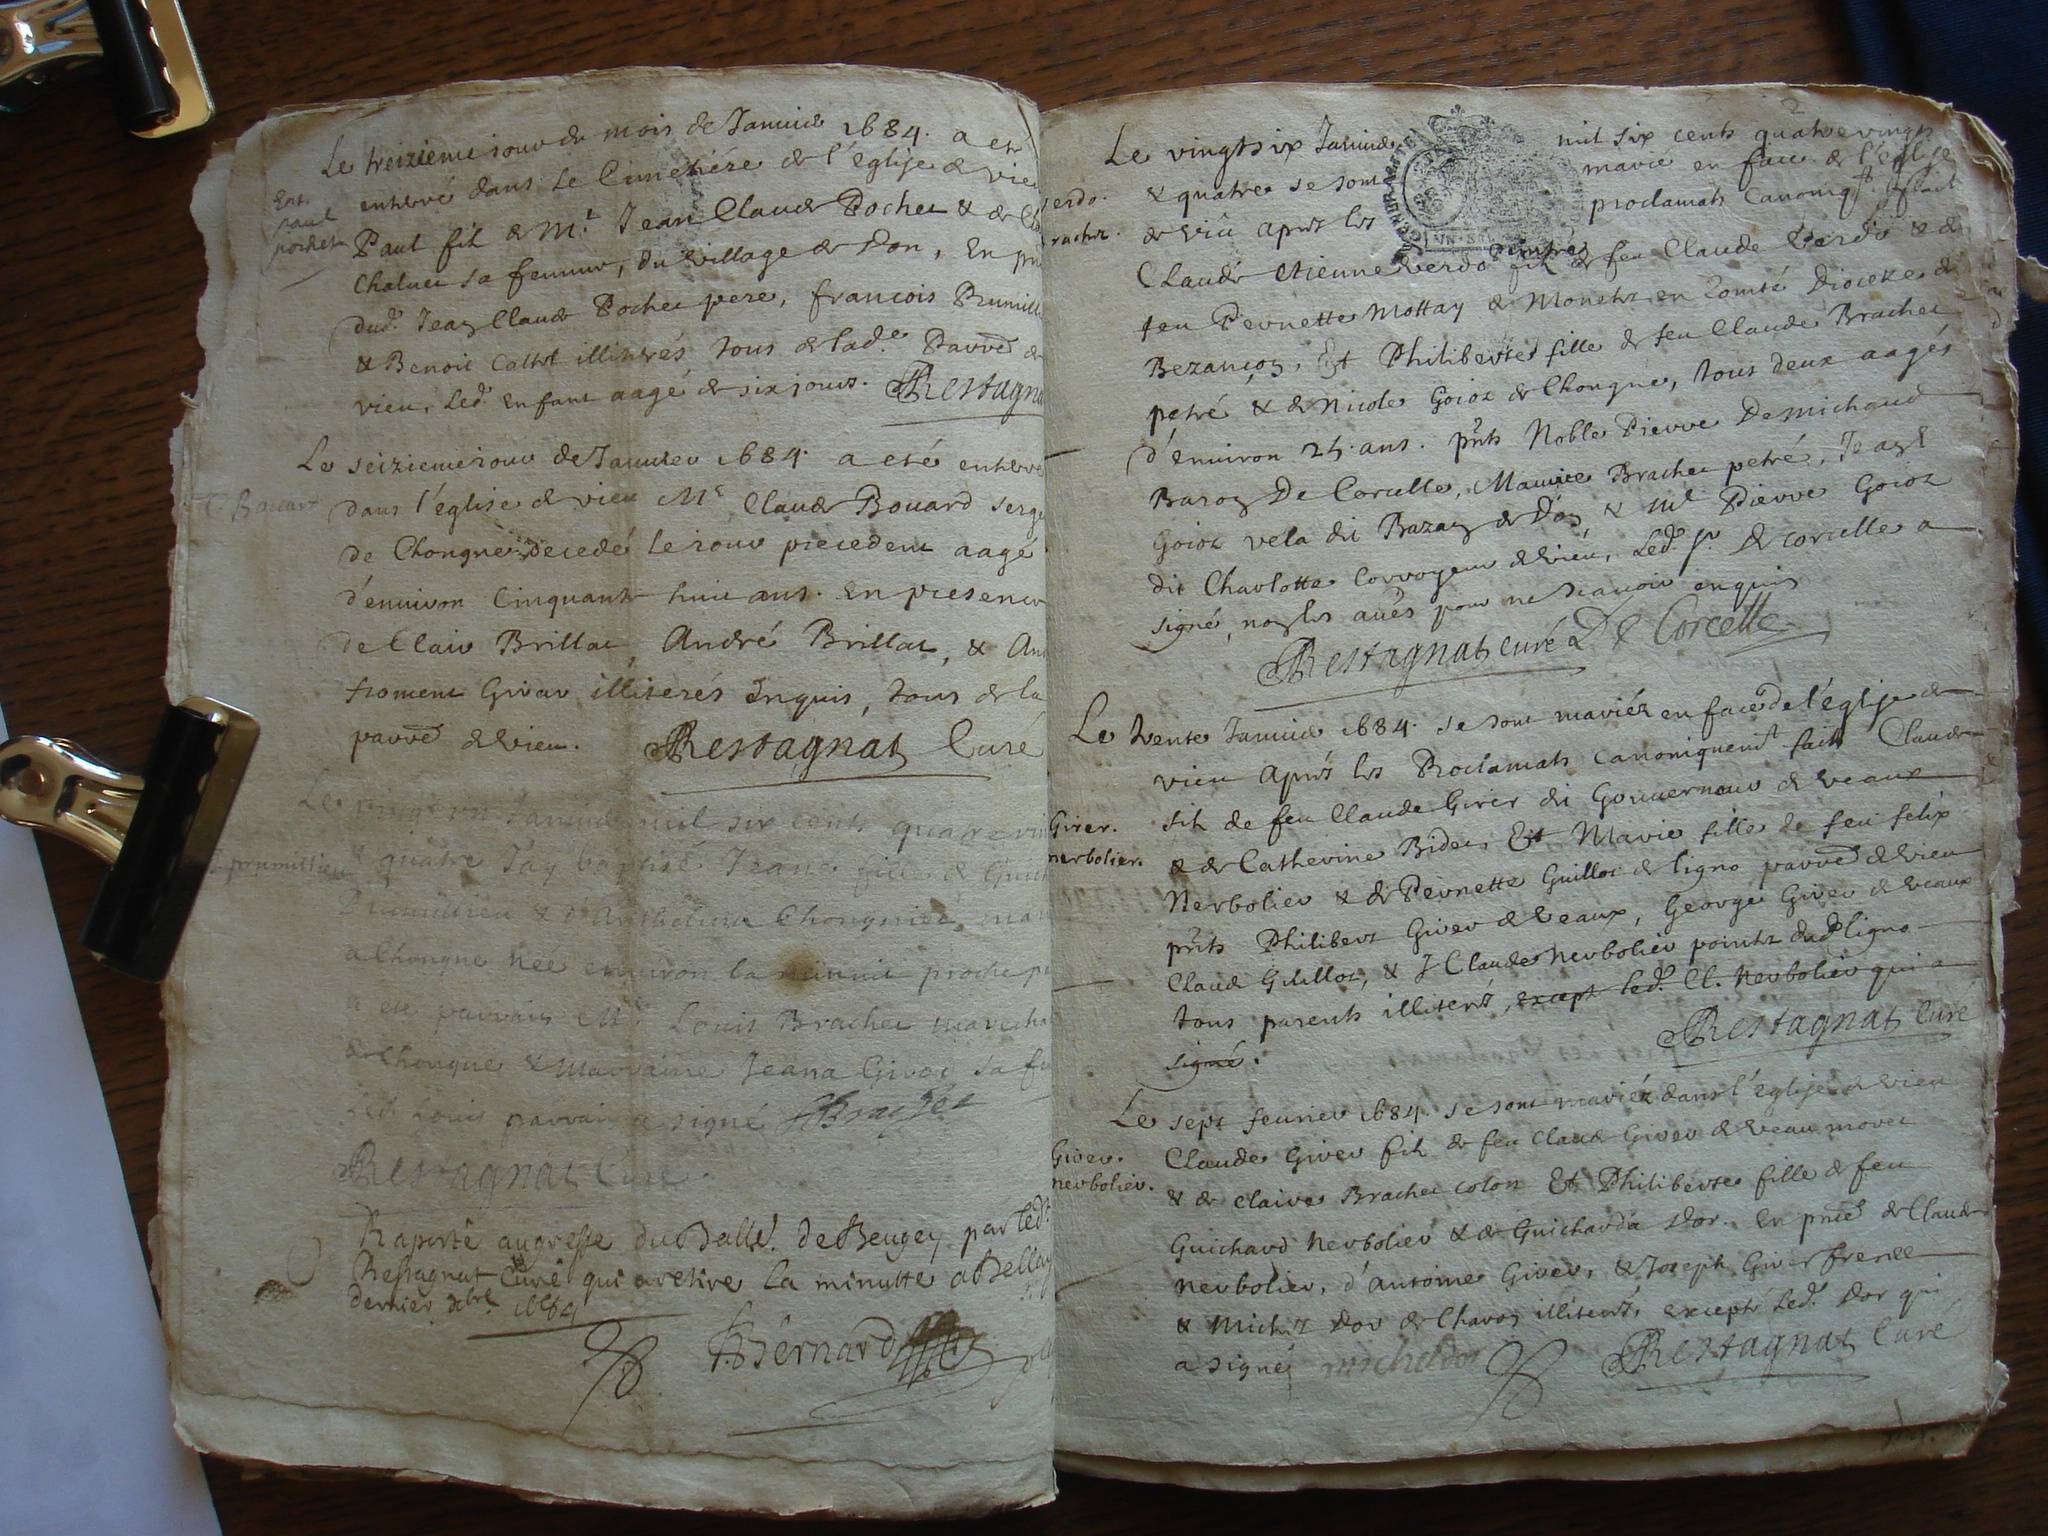 Le treizieme jour du mois de Januier 1684. a eté
enterré dans le Cimetiére de l'eglise de vieu
Ent.
paul
pochet
Paul fils de Mr. Jean Claude Pochet & de
Chaluet sa femme, du village de Don, En
dud. Jean Claude Pochet pere, françois
& Benoit Cattot illiterés tous de lade. Parroe de
vieu, Led. Enfant aagé de six jours. Restagnat
Le seizieme jour de Januier 1684. a eté enterré
C. Bouart
dans l'église de vieu Mr Claude Bouard
de Chongne decedé le jour precedent aagé
d'enuiron Cinquante huit ans. En presence
de Clair Brillat, André Brillat, &
froment Girer illiterés Enquis, tous de la
parroe de vieu. Restagnat Curé
Le vingt un Januier mil six cents quatre
prumillieu
quatre J'ay baptisé Jeane fille de
Prumillieu & d'Anthelma
a Chongne née enuiron la minuit
a eté parrain Mr. Louis Brachet
de Chongne & Marraine Jeana sa
Led. Louis parrain a signé Brachet
Restagnat Curé.
Raporté au greffe du Balle. de Beugey par ledt.
Restagnat Curé qui a retiré la minutte a Bellay
dernier xbre 1684
Bernard
2
Le vingt six Januier mil six cents quatre vingts
& quatre se sont marié en face de l'église
verdo.
brachet.
de vieu après les proclamats Canoniqt. fait
peintre
Claude etienne verdo fils de feu Claude Verdo & de
feu Pernette Mottay de Monetz en Comté Dioceze de
Bezançon, Et Philiberte fille de feu Claude Brachet
petré & de Nicole Goioz de Chongne, tous deux aagés
d'enuiron 25. ans. pnts Noble Pierre Demichaud
Baron De Corcelle, Maurice Brachet petré, Jean
Goioz vela dit Bazan de Don, & Me Pierre Goioz
dit Charlotte Corroyeur de vieu, Led. Sr. de corcelle a
signé, non les aures pour ne scauoir enquis
Restagnat curé De Corcelle
Le trente Januier 1684. se sont mariéz en face de l'église de
vieu Après les Proclamats canoniquemt faits Claude
Girer.
nerbolier.
fils de feu Claude Girer dit Gouuerneur de veaux
& de Catherine Bidet, Et Marie fille de feu felix
Nerbolier & de Pernette Guillot de ligno parroe de vieu
pnts Philibert Girer de veaux, George Girer de veaux
Claude Guillot, & Claude Nerbolier dud. ligno
tous parents illiterés, except led. Cl. Nerbolier qui a
signé.
Restagnat Curé
Le sept feurier 1684. se sont mariéz dans l'église de vieu
Girer.
nerbolier.
Claude Girer fils de feu Claude Girer de veau
& de claire Brachet colon Et Philiberte fille de feu
Guichard Nerbolier & de Guicharda Dor. En pnce de Claude
Nerbolier, d'Antoine Girer, & Joseph Girer
& Michel Dor de Chavon illiterés, excepté Led. Dor qui
a signé michel dor Restagnat Curé